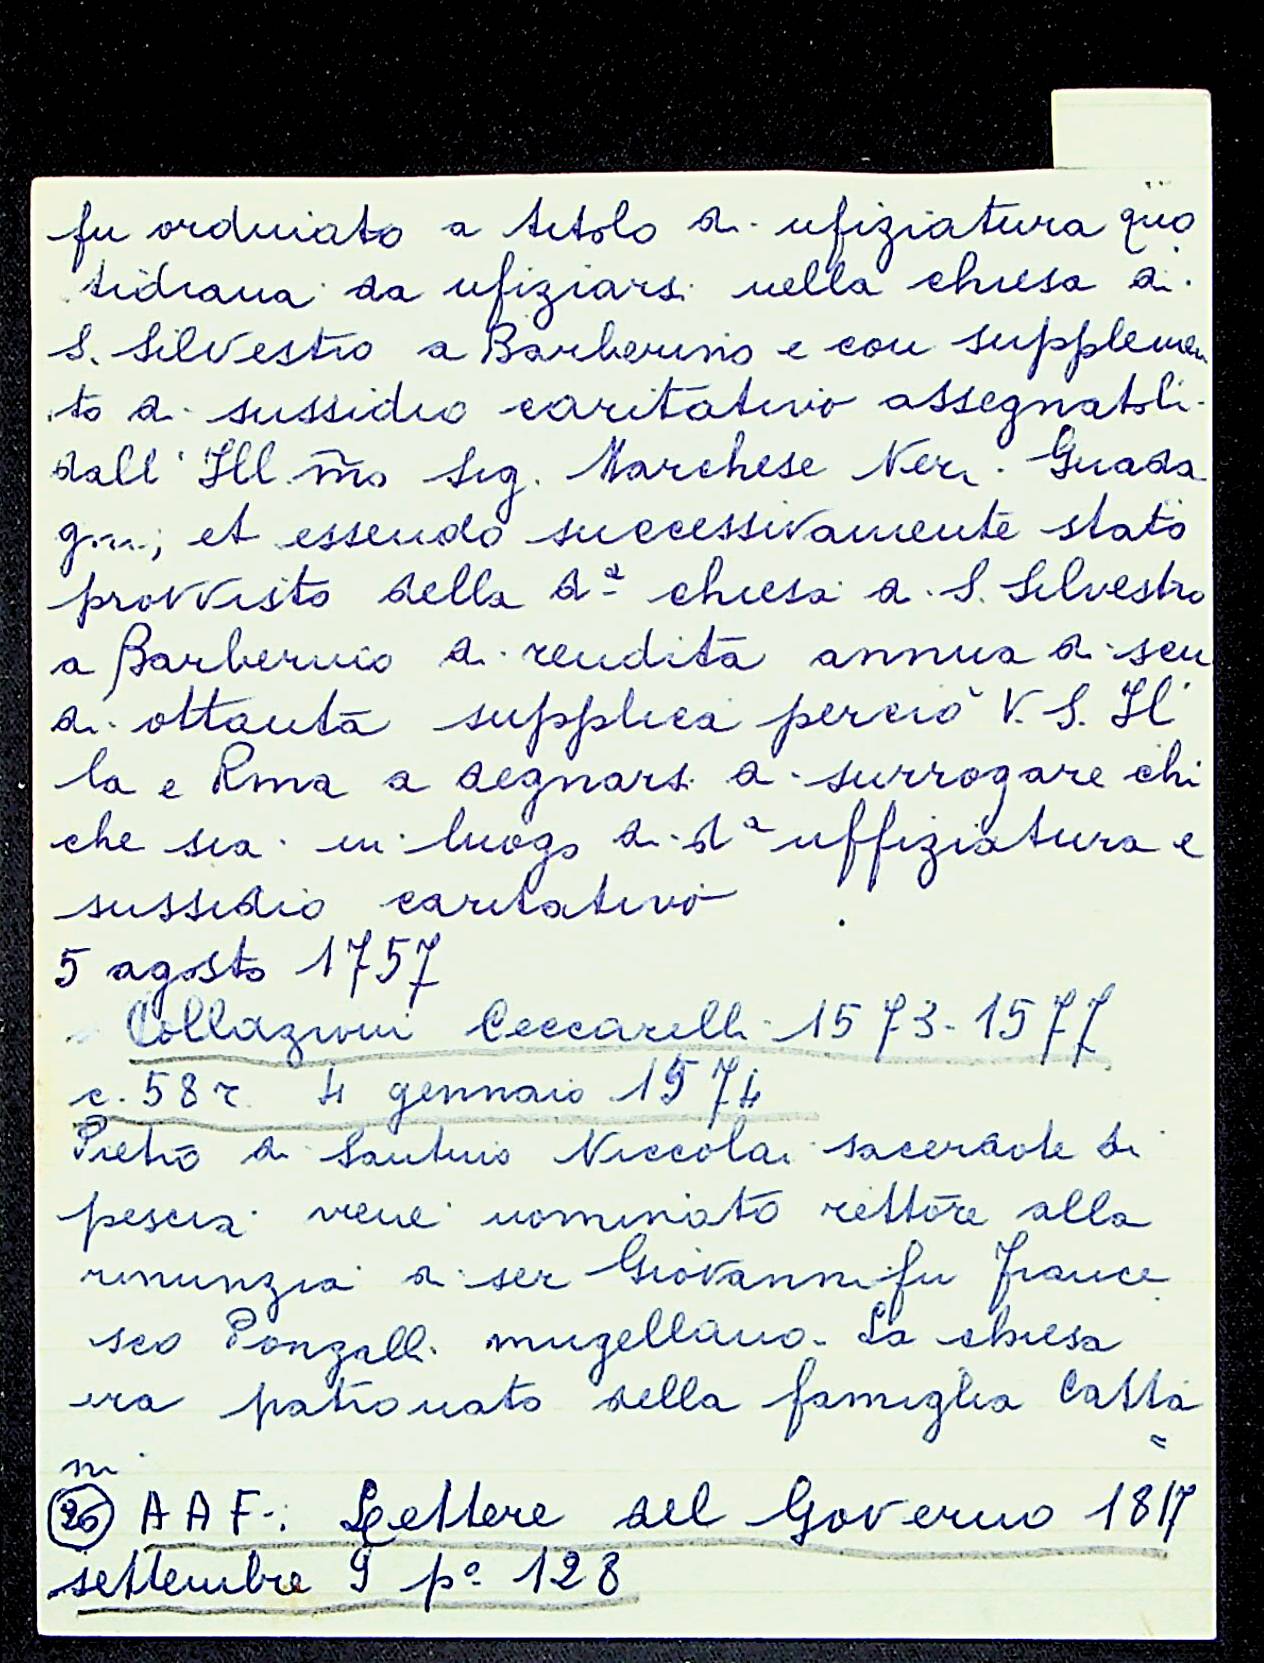 fu ordinato a titolo di ufiziatura quo
tidiana da ufiziarsi nella chiesa di
S. Silvestro a Barberino e con supplemen
to di sussidio caritativo assegnatoli
dall' Ill.mo Sig. Marchese Neri Guada
gni; et essendo successivamente stato
provvisto della dª chiesa di S. Silvestro
a Barberino di rendita annua di scu
di ottanta supplica perciò V. S. Il
la e Rma a degnarsi di surrogare chi
che sia in luogo di dª uffiziatura e
sussidio caritativo
5 agosto 1757
Collazioni Ceccarelli 1573-1577
c. 58 r. 4 gennaio 1574
Pietro di Santino Niccolai sacerdote di
pescia viene nominato rettore alla
rinunzia di ser Giovanni fu France
sco Ponzalli mugellano. La chiesa
era patronato della famiglia Catta
ni
26 A A F.: Lettere del Governo 1817
settembre 9 pº 128